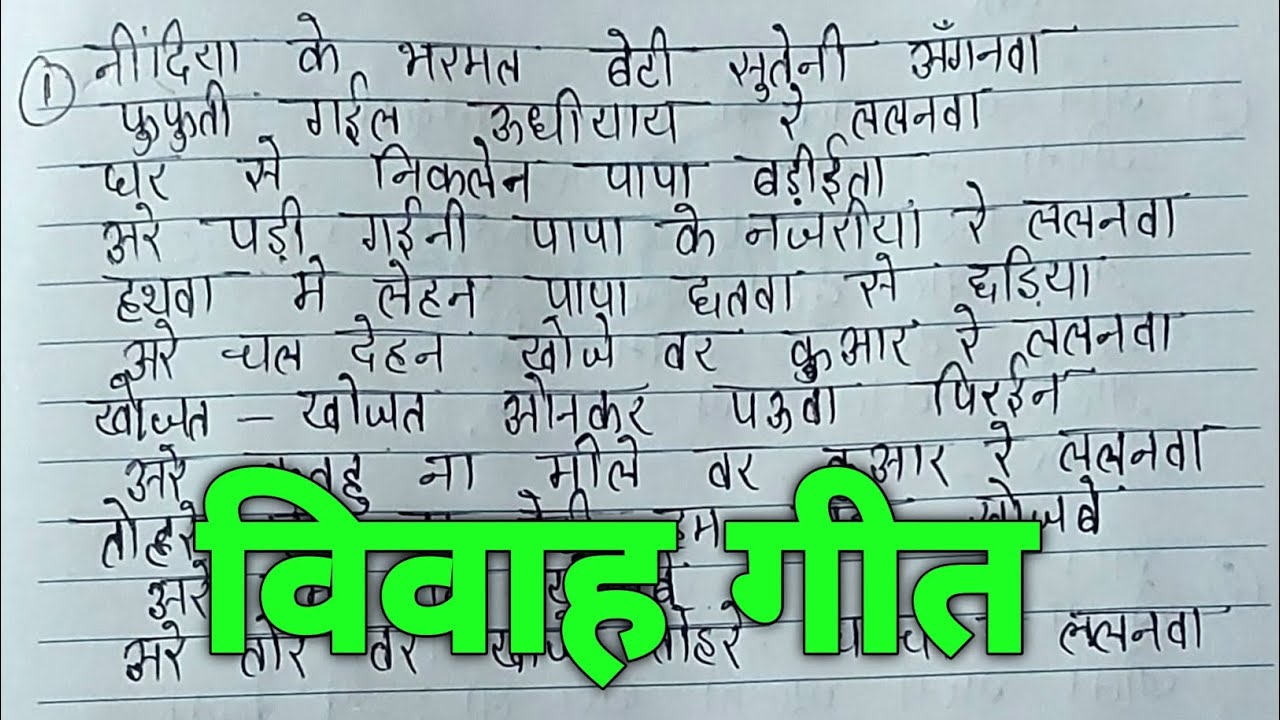 ① नींदिया के भरमल बेटी सुतेनी अँगनवा
फुफुती गईल ऊधीयाय रे ललनवा
घर से निकलेन पापा बड़ीईता
अरे पड़ी गईनी पापा के नजरीयां रे ललनवा
हथवा मे लेहन पापा छतवा से छड़िया
अरे चल देहन खोजे वर कुआर रे ललनवा
खोजत - खोजत ओनकर पऊवा पिरईन
अरे ना मीले वर कुआर रे ललनवा
तोहरे हम खोजबे
अरे
अरे तोर वर तोहरे ललनवा
विवाह गीत